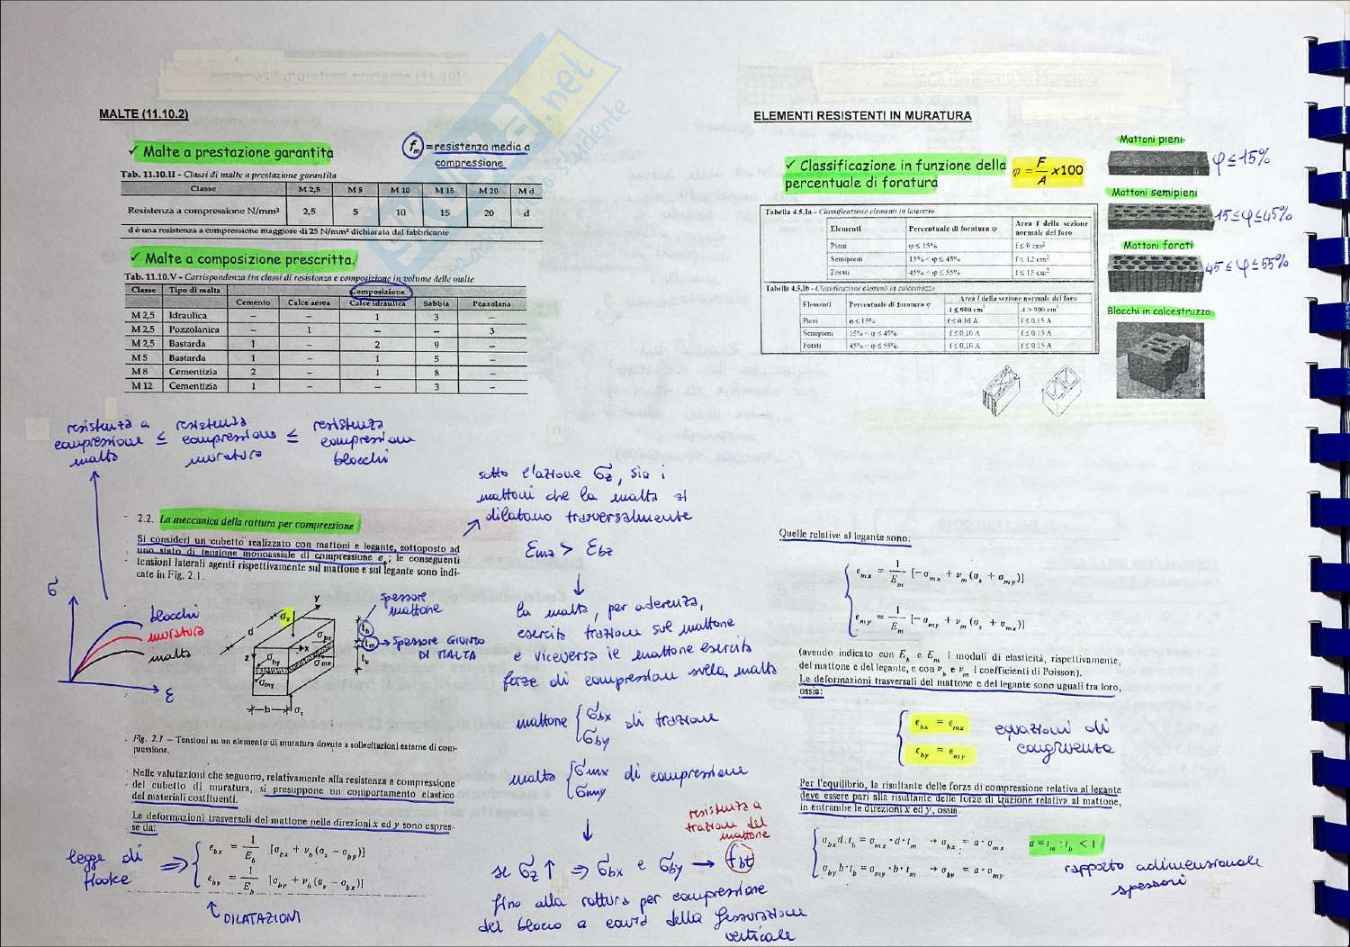 MALTE (11.10.2)
✓ Malte a prestazione garantita
fm = resistenza media a
compressione
Tab. 11.10.II - Classi di malte a prestazione garantita
Classe M 2,5 M 5 M 10 M 15 M 20 M d
Resistenza a compressione N/mm² 2,5 5 10 15 20 d
d è una resistenza a compressione maggiore di 25 N/mm² dichiarata dal fabbricante
✓ Malte a composizione prescritta.
Tab. 11.10.V - Corrispondenza tra classi di resistenza e composizione in volume delle malte
Classe Tipo di malta Composizione
Cemento Calce aerea Calce idraulica Sabbia Pozzolana
M 2,5 Idraulica – – 1 3 –
M 2,5 Pozzolanica – 1 – – 3
M 2,5 Bastarda 1 – 2 9 –
M 5 Bastarda 1 – 1 5 –
M 8 Cementizia 2 – 1 8 –
M 12 Cementizia 1 – – 3 –
resistenza a compressione malta ≤ resistenza compressione muratura ≤ resistenza compressione blocchi
2.2. La meccanica della rottura per compressione
Si consideri un cubetto realizzato con mattoni e legante, sottoposto ad
uno stato di tensione monoassiale di compressione σz; le conseguenti
tensioni laterali agenti rispettivamente sul mattone e sul legante sono indi-
cate in Fig. 2.1.
σ
blocchi
muratura
malta
ε
spessore
mattone
spessore GIUNTO
DI MALTA
Fig. 2.1 – Tensioni su un elemento di muratura dovute a sollecitazioni esterne di com-
pressione.
Nelle valutazioni che seguono, relativamente alla resistenza a compressione
del cubetto di muratura, si presuppone un comportamento elastico
dei materiali costituenti.
Le deformazioni trasversali del mattone nelle direzioni x ed y sono espres-
se da:
legge di
Hooke
εbx = 1/Eb [σbx + νb(σz − σby)]
εby = 1/Eb [σby + νb(σz − σbx)]
DILATAZIONI
sotto l'azione σz, sia i
mattoni che la malta si
dilatano trasversalmente
εmz > εbz
la malta, per aderenza,
esercita trazione sul mattone
e viceversa il mattone esercita
forze di compressione sulla malta
mattone { σbx σby di trazione
malta { σmx σmy di compressione
resistenza a
trazione del
mattone
se σz ↑ ⇒ σbx e σby → fbt
fino alla rottura per compressione
del blocco a causa della fessurazione
verticale
ELEMENTI RESISTENTI IN MURATURA
✓ Classificazione in funzione della
percentuale di foratura
φ = F/A x100
Tabella 4.5.Ia - Classificazione elementi in laterizio
Elementi Percentuale di foratura φ Area f della sezione normale del foro
Pieni φ ≤ 15% f ≤ 9 cm²
Semipieni 15% < φ ≤ 45% f ≤ 12 cm²
Forati 45% < φ ≤ 55% f ≤ 15 cm²
Tabella 4.5.Ib - Classificazione elementi in calcestruzzo
Elementi Percentuale di foratura φ Area f della sezione normale del foro
A ≤ 900 cm² A > 900 cm²
Pieni φ ≤ 15% f ≤ 0,10 A f ≤ 0,15 A
Semipieni 15% < φ ≤ 45% f ≤ 0,10 A f ≤ 0,15 A
Forati 45% < φ ≤ 55% f ≤ 0,10 A f ≤ 0,15 A
Mattoni pieni
φ ≤ 15%
Mattoni semipieni
15 ≤ φ ≤ 45%
Mattoni forati
45 ≤ φ ≤ 55%
Blocchi in calcestruzzo
Quelle relative al legante sono:
εmx = 1/Em [−σmx + νm(σz + σmy)]
εmy = 1/Em [−σmy + νm(σz + σmx)]
(avendo indicato con Eb e Em i moduli di elasticità, rispettivamente,
del mattone e del legante, e con νb e νm i coefficienti di Poisson).
Le deformazioni trasversali del mattone e del legante sono uguali fra loro,
ossia:
εbx = εmx
εby = εmy
equazioni di
congruenza
Per l'equilibrio, la risultante delle forze di compressione relativa al legante
deve essere pari alla risultante delle forze di trazione relativa al mattone,
in entrambe le direzioni x ed y, ossia:
σbx d·tb = σmx·d·tm → σbx = a·σmx
σby b·tb = σmy·b·tm → σby = a·σmy
a = tm : tb < 1
rapporto adimensionale
spessori